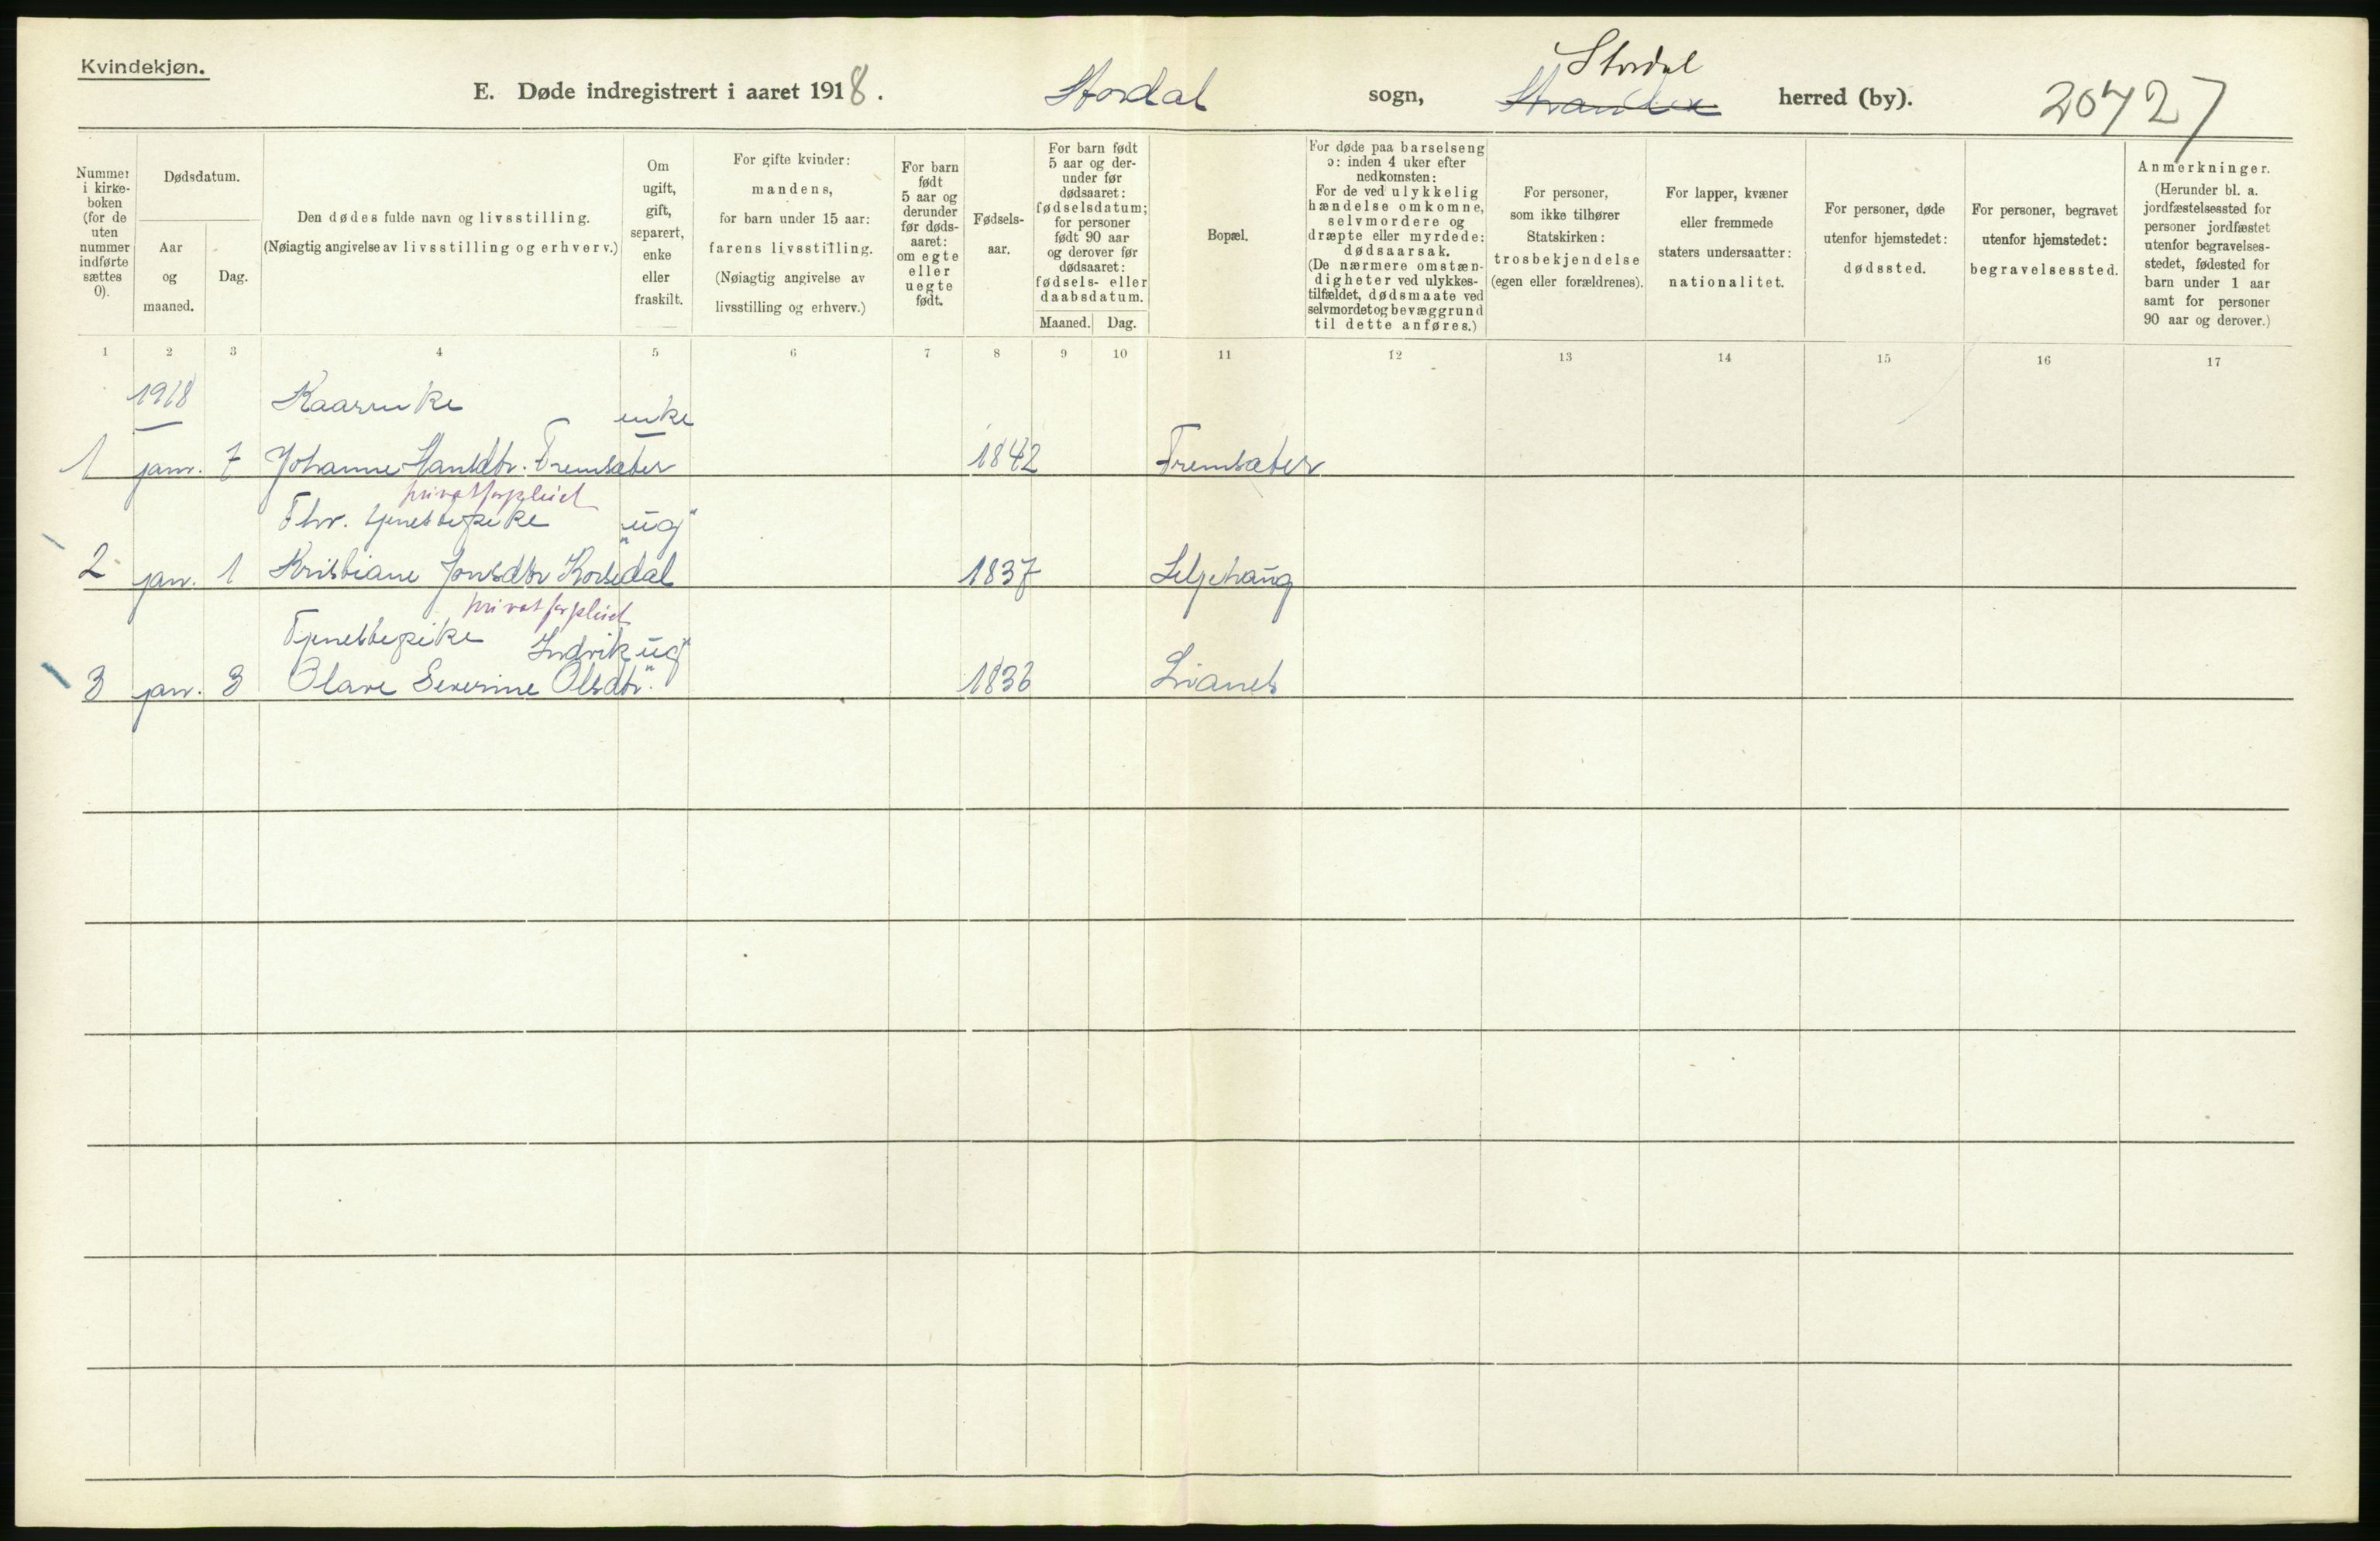 Kvindekjøn.
E. Døde indregistrert i aaret 1918. Stordal sogn, Stordal Stranden herred (by). 20727
Nummer i kirke-
boken
(for de
uten
nummer
indførte
sættes
0).
Dødsdatum.
Aar
og
maaned.
Dag.
Den dødes fulde navn og livsstilling.
(Nøiagtig angivelse av livsstilling og erhverv.)
Om
ugift,
gift,
separert,
enke
eller
fraskilt.
For gifte kvinder:
mandens,
for barn under 15 aar:
farens livsstilling.
(Nøiagtig angivelse av
livsstilling og erhverv.)
For barn
født
5 aar og
derunder
før døds-
aaret:
om egte
eller
uegte
født.
Fødsels-
aar.
For barn født
5 aar og der-
under før
dødsaaret:
fødselsdatum;
for personer
født 90 aar
og derover før
dødsaaret:
fødsels- eller
daabsdatum.
Maaned. Dag.
Bopæl.
For døde paa barselseng
ɔ: inden 4 uker efter
nedkomsten:
For de ved ulykkelig
hændelse omkomne,
selvmordere og
dræpte eller myrdede:
dødsaarsak.
(De nærmere omstæn-
digheter ved ulykkes-
tilfældet, dødsmaate ved
selvmordet og bevæggrund
til dette anføres.)
For personer,
som ikke tilhører
Statskirken:
trosbekjendelse
(egen eller forældrenes).
For lapper, kvæner
eller fremmede
staters undersaatter:
nationalitet.
For personer, døde
utenfor hjemstedet:
dødssted.
For personer, begravet
utenfor hjemstedet:
begravelsessted.
Anmerkninger.
(Herunder bl. a.
jordfæstelsessted for
personer jordfæstet
utenfor begravelses-
stedet, fødested for
barn under 1 aar
samt for personer
90 aar og derover.)
1 2 3 4 5 6 7 8 9 10 11 12 13 14 15 16 17
1918 Kaarenke enke
1 janr. 7 Johanne Hansdtr. Fremsæter 1842 Fremsæter
privat forpleiet
Fhv. tjenestepike "ug"
2 jan. 1 Kristiane Jonsdtr Korsedal 1837 Seljehaug
privat forpleiet
Tjenestepike Indvik "ug"
3 jan. 3 Olave Severine Olsdtr. 1836 Lianes